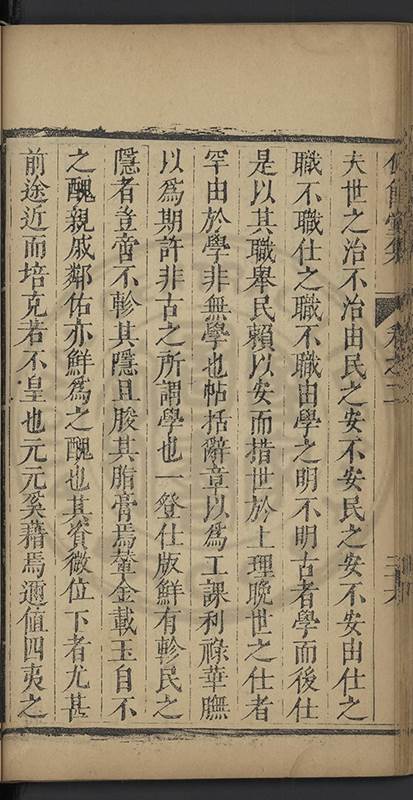 夫世之治不治由民之安不安民之安不安由仕之
職不職仕之職不職由學之明不明古者學而後仕
是以其職舉民賴以安而措世於上理晚世之仕者
罕由於學非無學也帖括辭章以爲工課利祿華膴
以爲期許非古之所謂學也一登仕版鮮有軫民之
隱者豈啻不軫其隱且朘其脂膏焉輦金載玉自不
之醜親戚鄰佑亦鮮爲之醜也其貧微位下者尤甚
前途近而培克若不皇也元元奚藉焉邇值四夷之